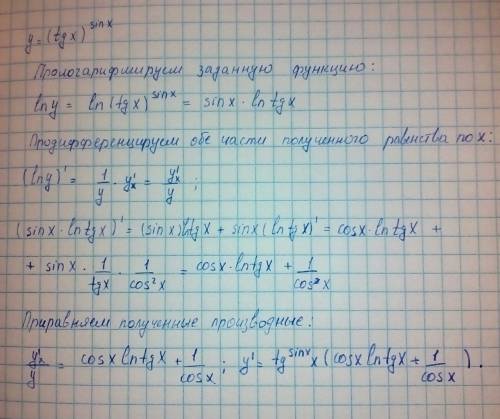 y = (tg x)^sin x
Прологарифмируем заданную функцию:
ln y = ln (tg x)^sin x = sin x · ln tg x
Продифференцируем обе части полученного равенства по x:
(ln y)' = 1/y · y'x = y'x/y ;
(sin x · ln tg x)' = (sin x)' ln tg x + sin x (ln tg x)' = cos x · ln tg x +
+ sin x · 1/tg x · 1/cos² x = cos x · ln tg x + 1/cos x
Приравняем полученные производные:
y'x/y = cos x ln tg x + 1/cos x ; y' = tg^sin x x (cos x ln tg x + 1/cos x).